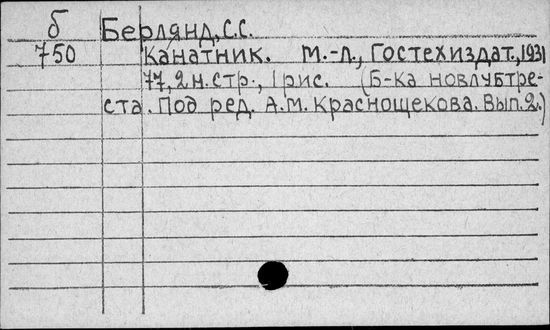 б Берлянд, С.С.
750 Канатник. М.-Л., Гостехиздат, 1931
77, 2 н. стр., 1 рис. (Б-ка новлубтре-
ста. Под ред. А.М. Краснощекова. Вып. 2.)